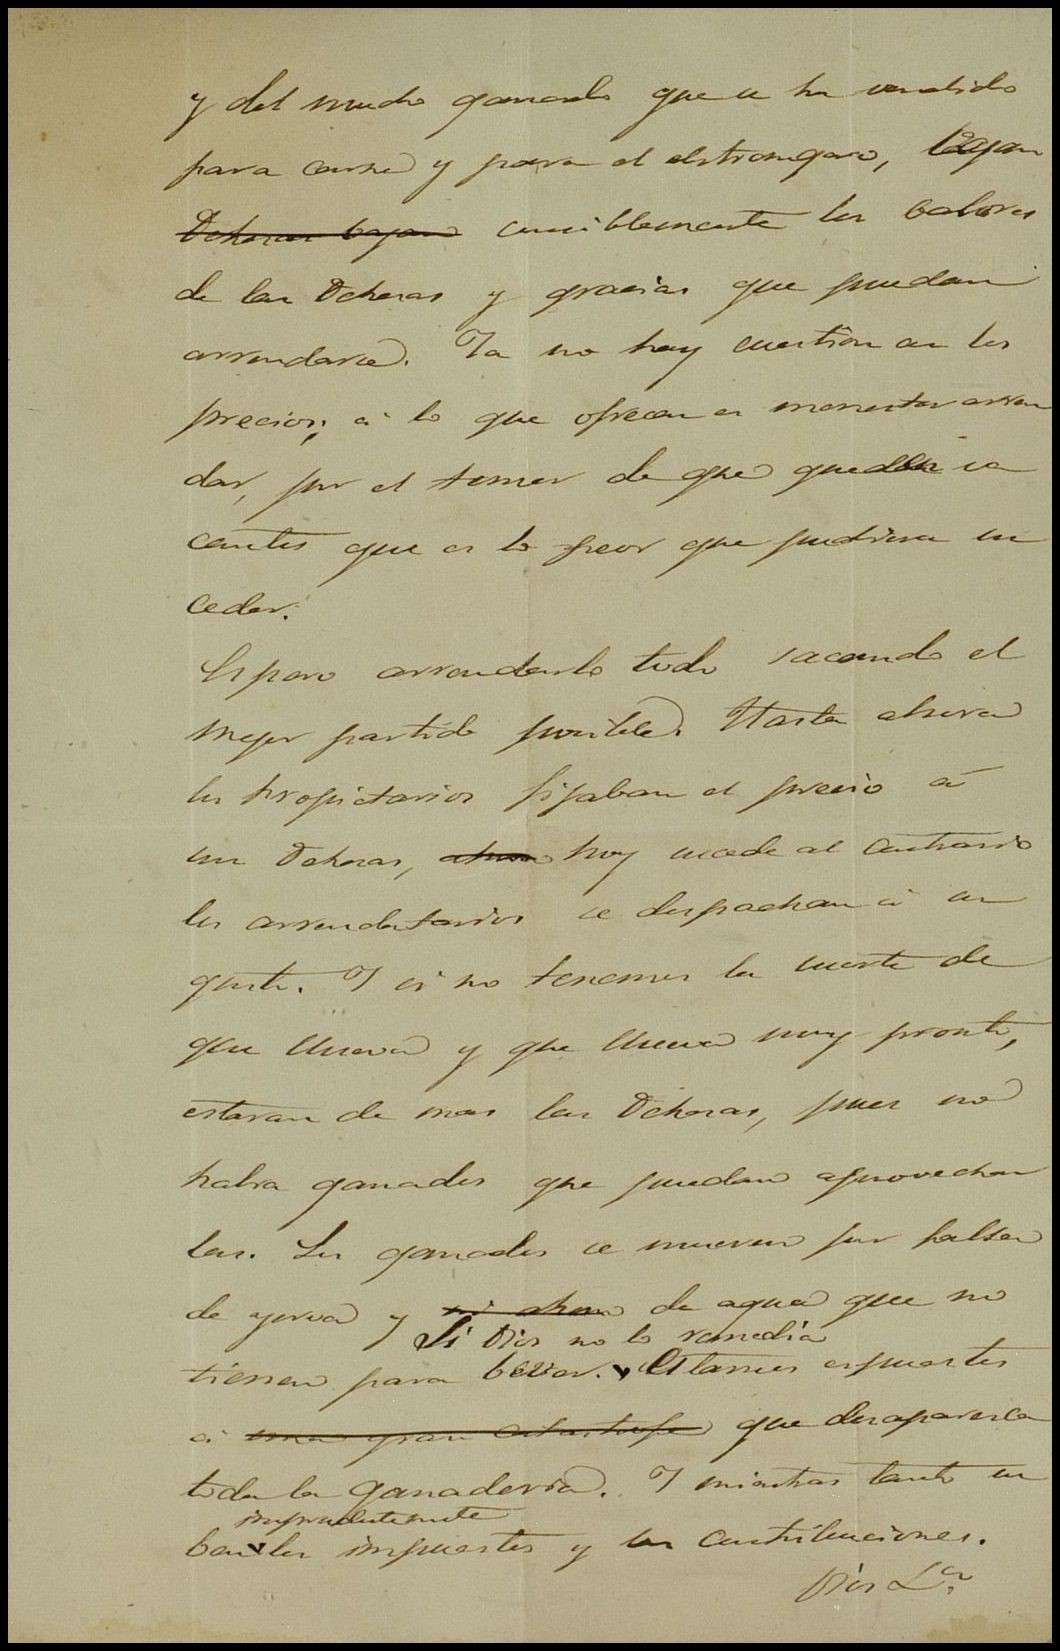 y del mucho ganado que se ha vendido
para carne y para el estrangero, bajan
Dehesas bajan sensiblemente los balores
de las Dehesas y gracias que puedan
arrendarse. Ya no hay cuestion en los
precios; á lo que ofrecen es menester arren
dar, por el temor de que queden va
cantes que es lo peor que pudiera su
ceder.
Espero arrendarlo todo sacando el
mejor partido posible. Hasta ahora
los propietarios fijaban el precio á
sus Dehesas, ahora hoy sucede al contrario
los arrendatarios se despachan á su
gusto. Y si no tenemos la suerte de
que llueva y que llueva muy pronto,
estaran de mas las Dehesas, pues no
habra ganados que puedan aprovechar
las. Los ganados se mueren por falta
de yerva y ni ahun de agua que no
Si Dios no lo remedia
tienen para bever. Estamos espuestos
á una gran catastrofe que desaparesca
toda la ganaderia. Y mientras tanto su
imprudentemente
ben los impuestos y las contribuciones.
Dios Lo